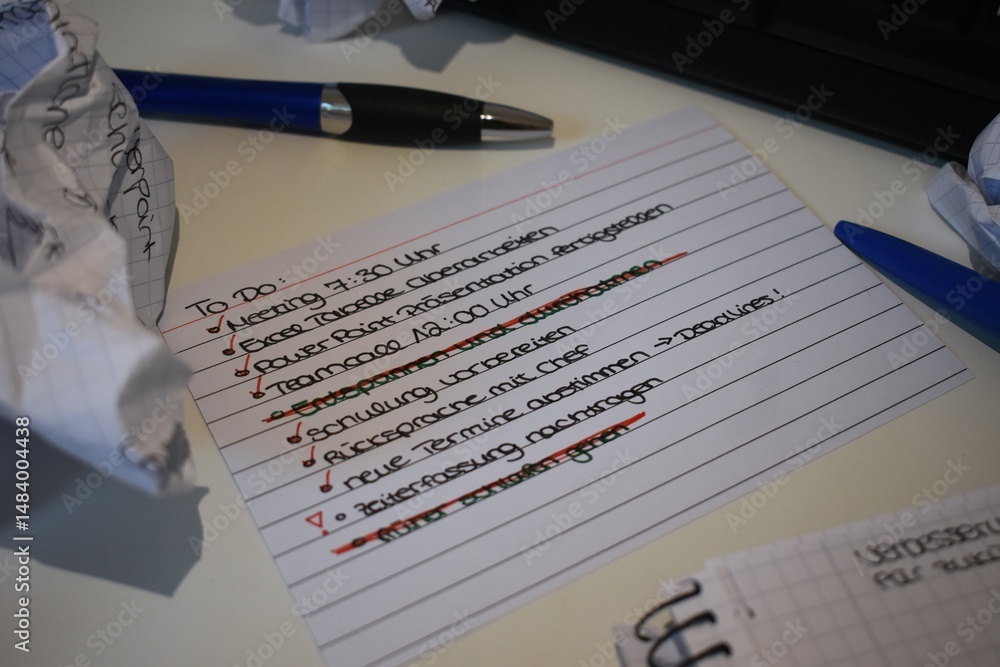 To Do:
Meeting 7:30 Uhr
Excel Tabelle überarbeiten
PowerPoint Präsentation fertigstellen
Teamcall 12:00 Uhr
Entspannen und durchatmen
Schulung vorbereiten
Rücksprache mit Chef
neue Termine abstimmen → Deadlines!
! Zeiterfassung nachtragen
früher schlafen gehen
Adobe Stock | #1484004438